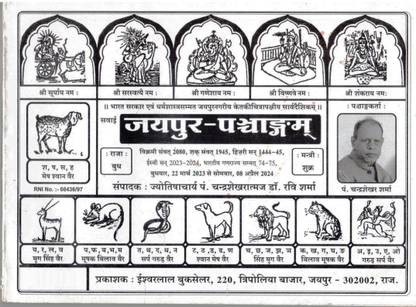 श्री सूर्याय नमः
श्री सरस्वत्यै नमः
श्री गणेशाय नमः
श्री विष्णवे नमः
श्री शंकराय नमः
॥ भारत सरकार एवं धर्मशास्त्रसम्मत जयपुरनगरीय केतकीचित्रापक्षीय सार्वदेशिकम् ॥
सवाई
जयपुर-पञ्चाङ्गम्
पञ्चाङ्गकर्ता :
राजा :
बुध
विक्रमी संवत् 2080, शक संवत् 1945, हिजरी सन् 1444-45,
ईस्वी सन् 2023-2024, भारतीय गणराज्य सम्वत् 74-75,
बुधवार, 22 मार्च 2023 से सोमवार, 08 अप्रैल 2024
मन्त्री :
शुक्र
श, ष, स, ह
मेष श्वान वैर
RNI No. :- 60436/97
संपादक : ज्योतिषाचार्य पं. चन्द्रशेखरात्मज डॉ. रवि शर्मा
पं. चन्द्रशेखर शर्मा
य, र, ल, व
मृग सिंह वैर
प, फ, ब, भ, म
मूषक बिलाव वैर
त, थ, द, ध, न
सर्प गरुड़ वैर
ट, ठ, ड, ढ, ण
श्वान मेष वैर
च, छ, ज, झ, ञ
सिंह मृग वैर
क, ख, ग, घ, ङ
बिलाव मूषक वैर
अ, इ, उ, ए, ओ
गरुड़ सर्प वैर
प्रकाशक : ईश्वरलाल बुकसेलर, 220, त्रिपोलिया बाजार, जयपुर - 302002, राज.